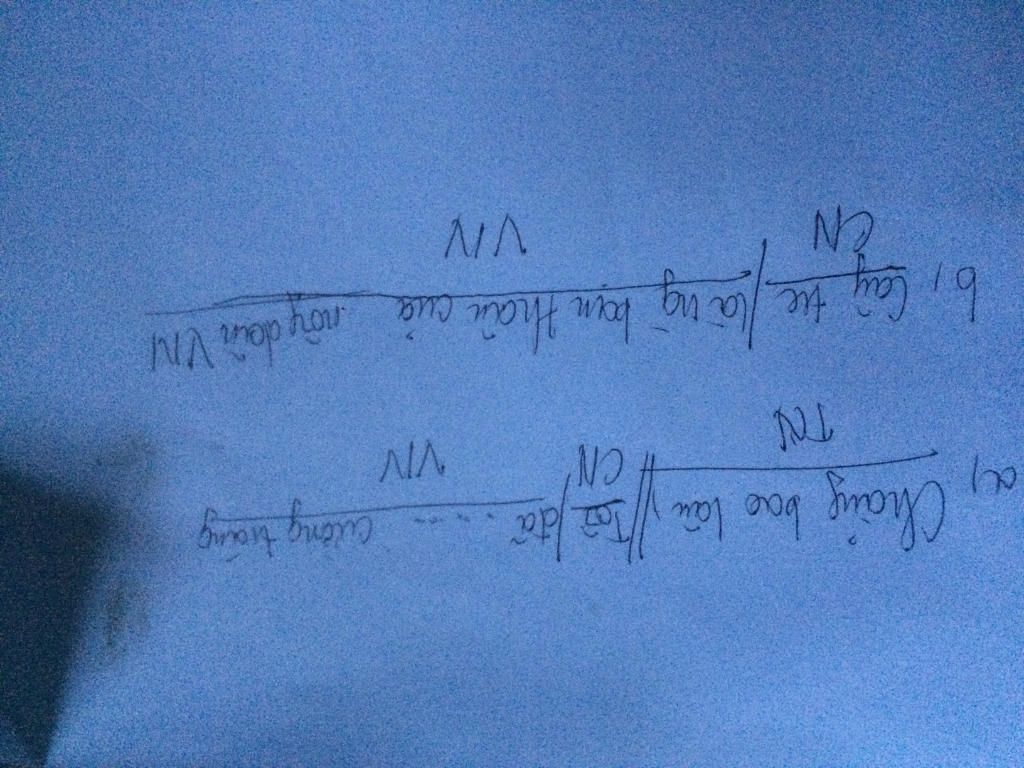 a, Chẳng bao lâu, // Tôi / đã .... cường tráng
TN CN VN
b, Cây tre / là ng` bạn thân của nông dân VN
CN VN